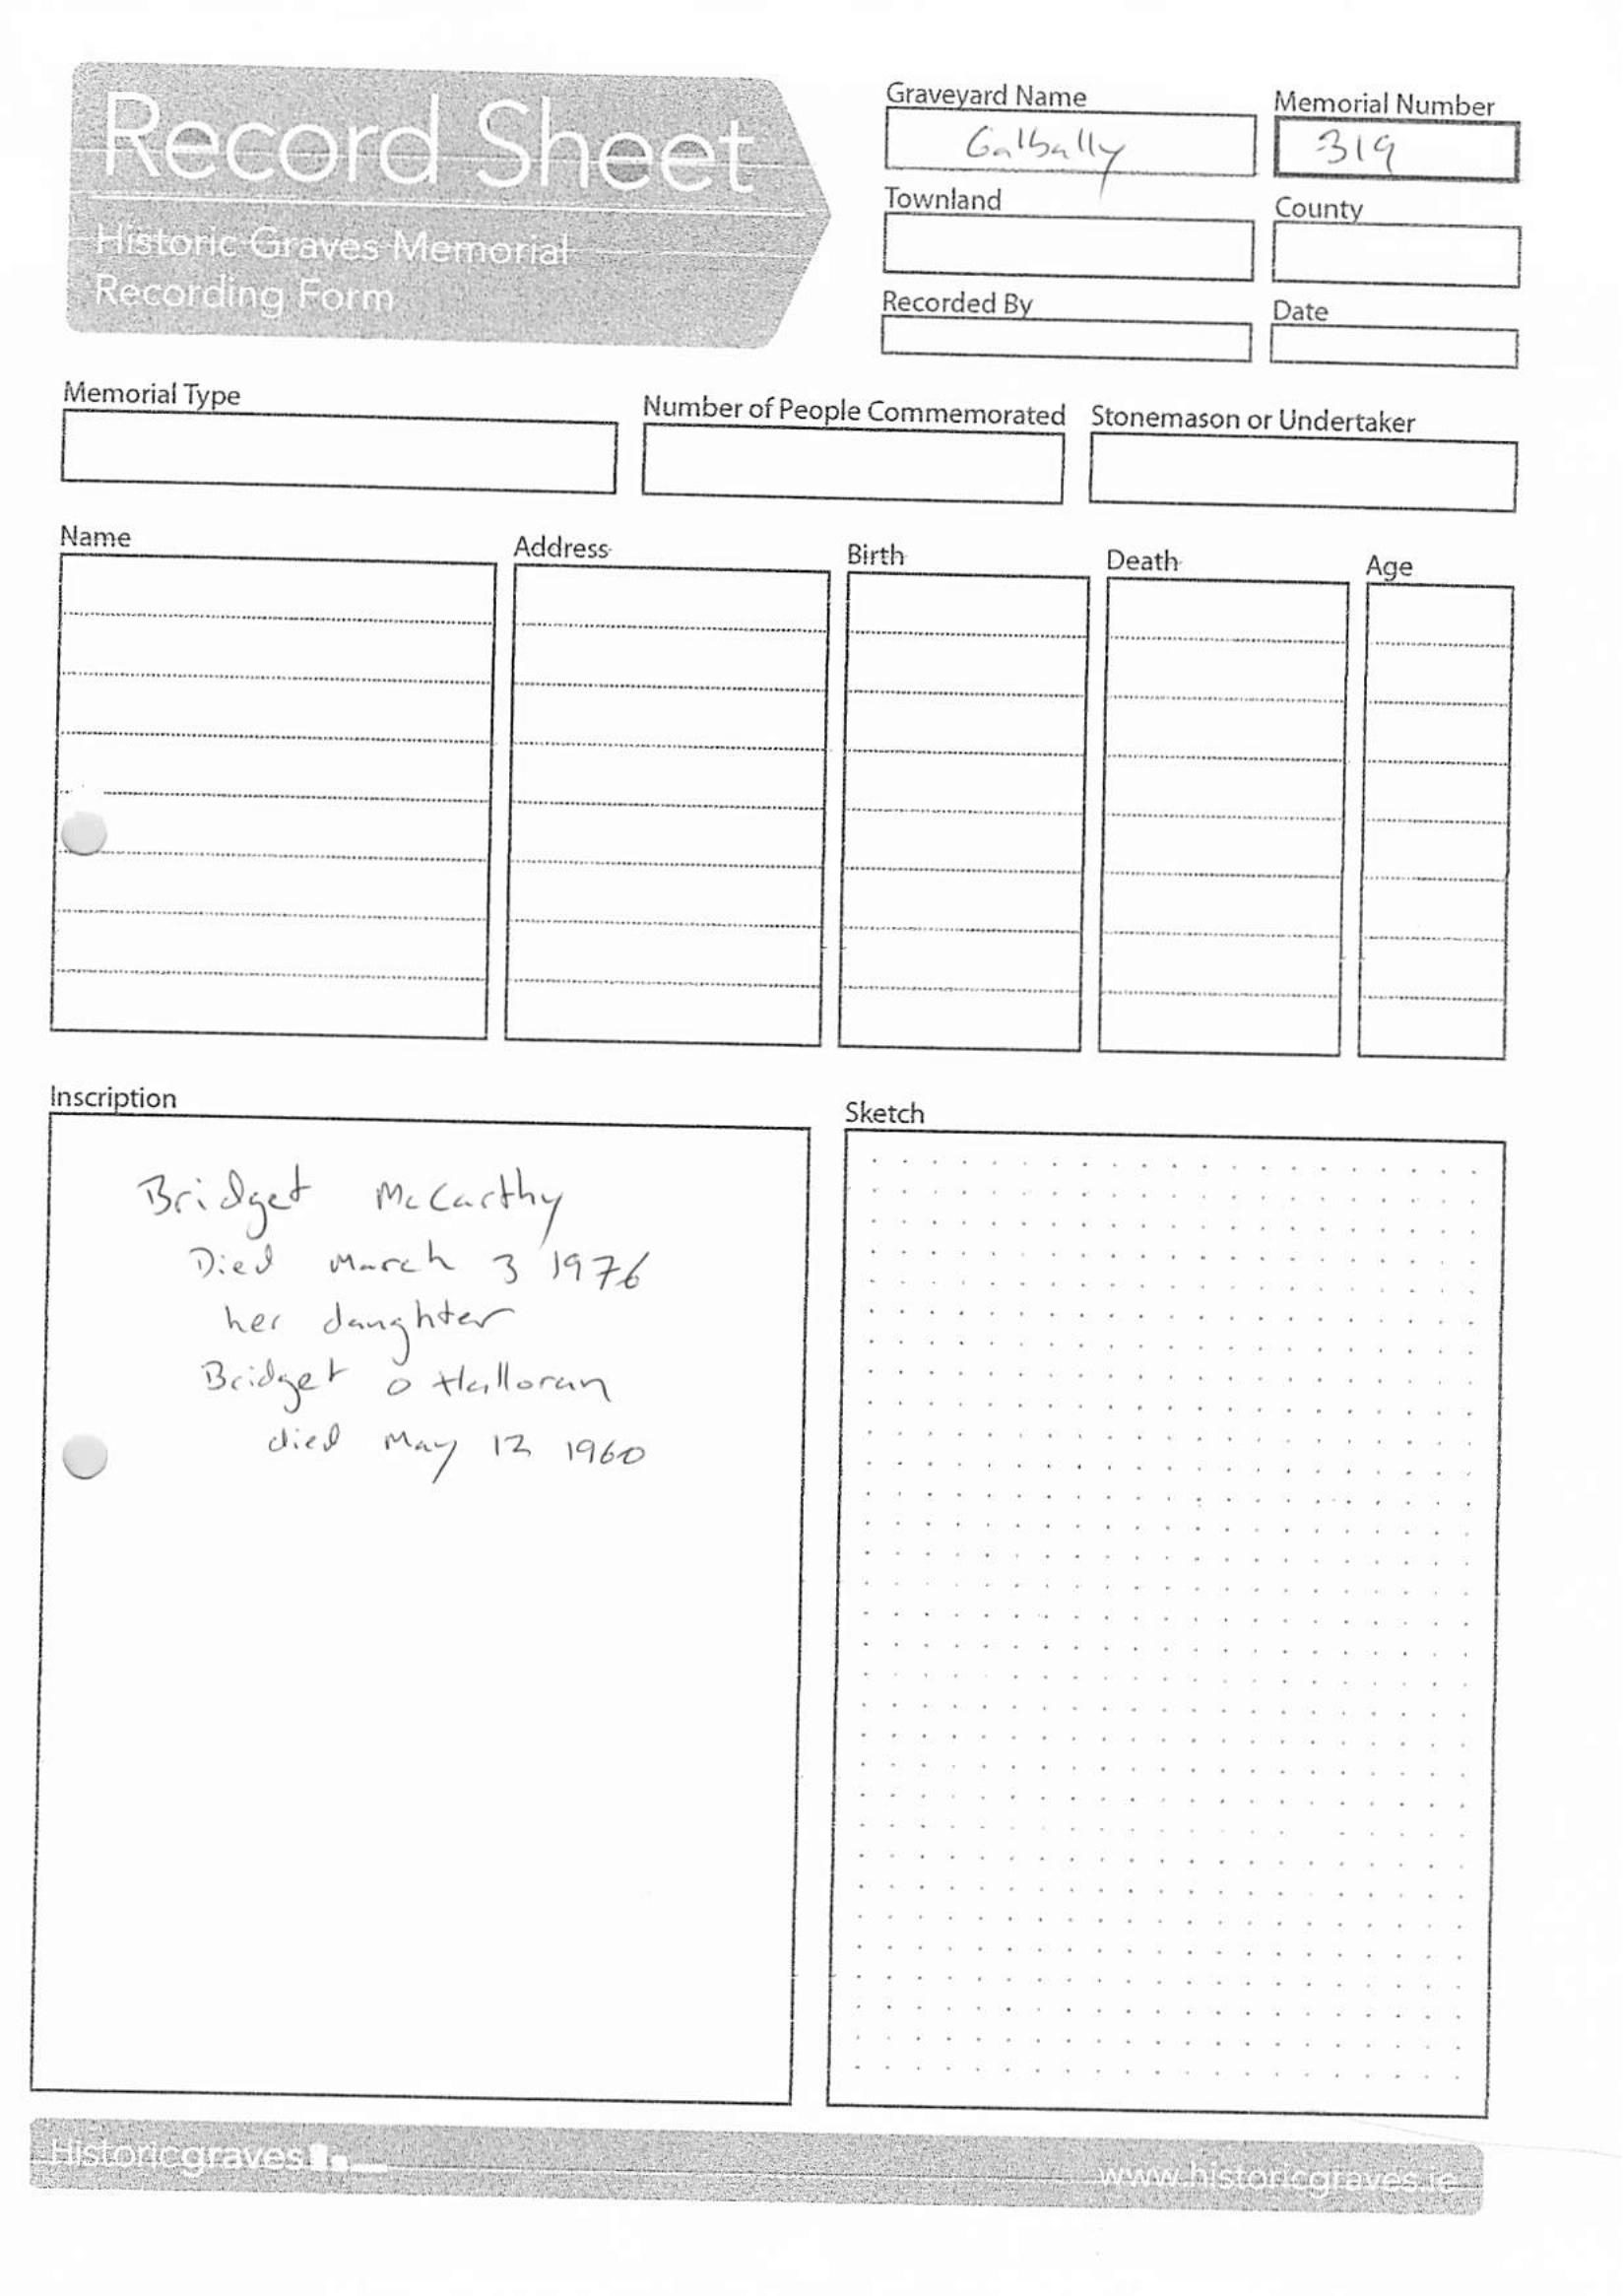 Record Sheet
Historic Graves Memorial
Recording Form
Graveyard Name
Galbally
Memorial Number
319
Townland
County
Recorded By
Date
Memorial Type
Number of People Commemorated
Stonemason or Undertaker
Name
Address
Birth
Death
Age
Inscription
Bridget McCarthy
Died March 3 1976
her daughter
Bridget o Halloran
died May 12 1960
Sketch
Historicgraves
www.historicgraves.ie